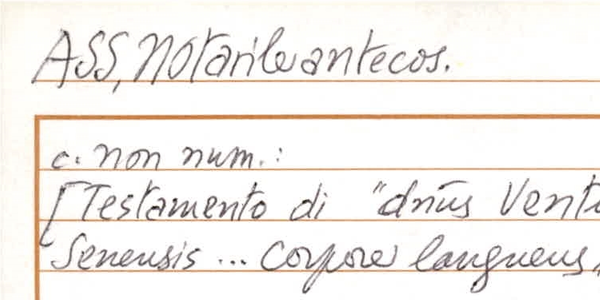 ASS, Notarile antecos.
c. non num.:
[Testamento di "dnūs Ventu
Senensis ... corpore languens,